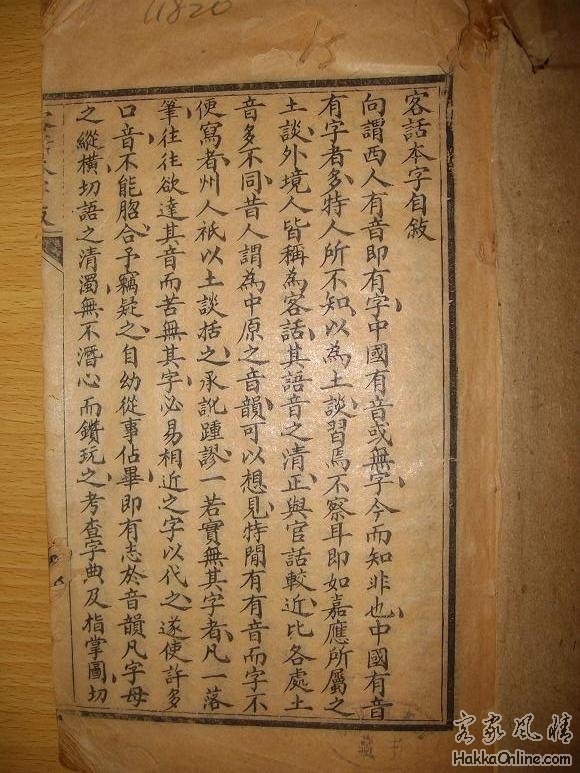 11820
客話本字自敘
向謂西人有音即有字中國有音或無字今而知非也中國有音
有字者多特人所不知以為土談習焉不察耳即如嘉應所屬之
土談外境人皆稱為客話其語音之清正與官話較近比各處土
音多不同昔人謂為中原之音韻可以想見特間有有音而字不
便寫者州人祇以土談括之承訛踵謬一若實無其字者凡一落
筆往往欲達其音而苦無其字必易相近之字以代之遂使許多
口音不能脗合予竊疑之自幼從事佔畢即有志於音韻凡字母
之縱橫切語之清濁無不潛心而鑽玩之考查字典及指掌圖切
客家風情
HakkaOnline.com